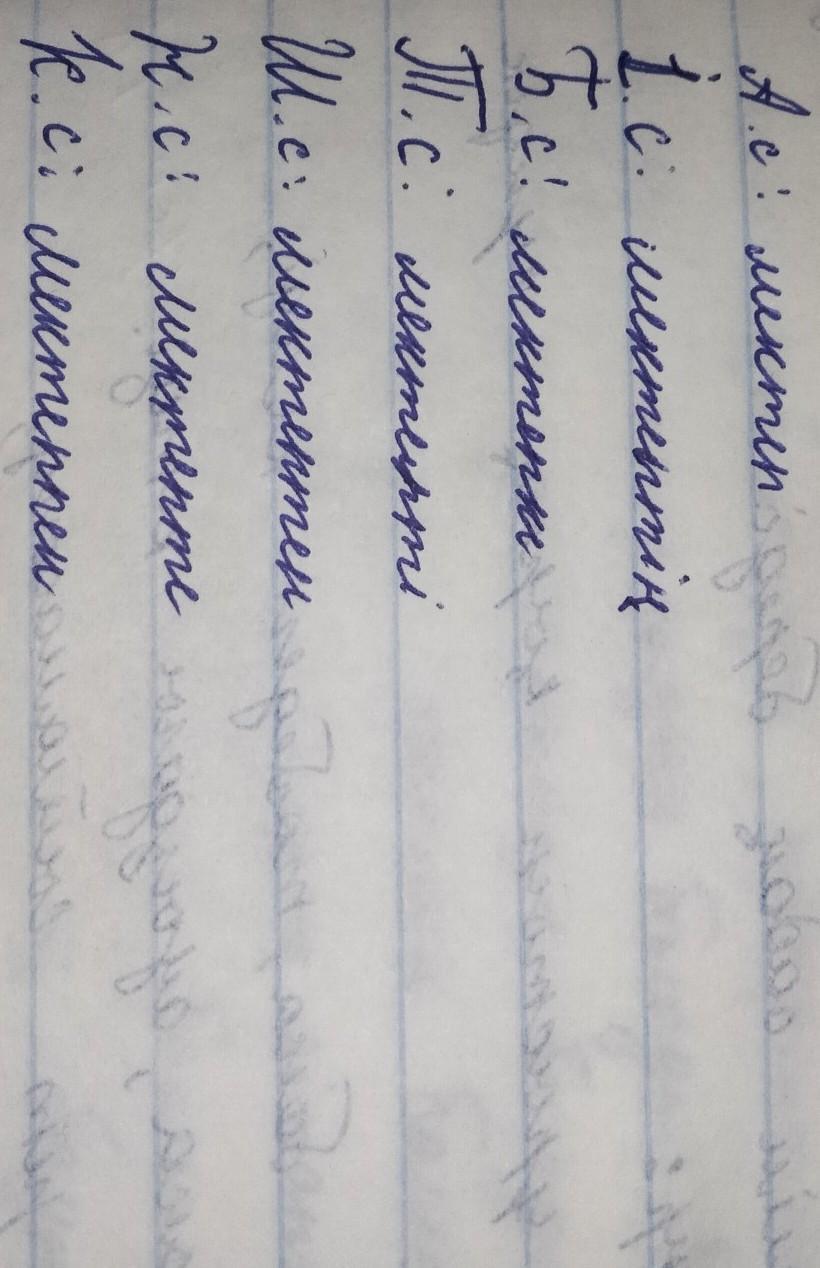 А.с: мектеп
І.с: мектептің
Б.с: мектепке
Т.с: мектепті
Ш.с: мектептен
Ж.с: мектепте
К.с: мектеппен